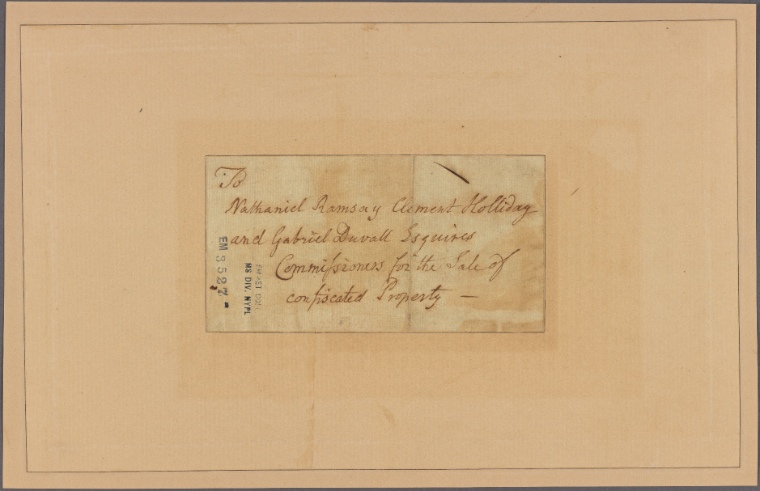 To
Nathaniel Ramsay Clement Holliday
and Gabriel Duvall Esquires
Commissioners for the Sale of
confiscated Property —
EM 8527
MS DIV. NYPL